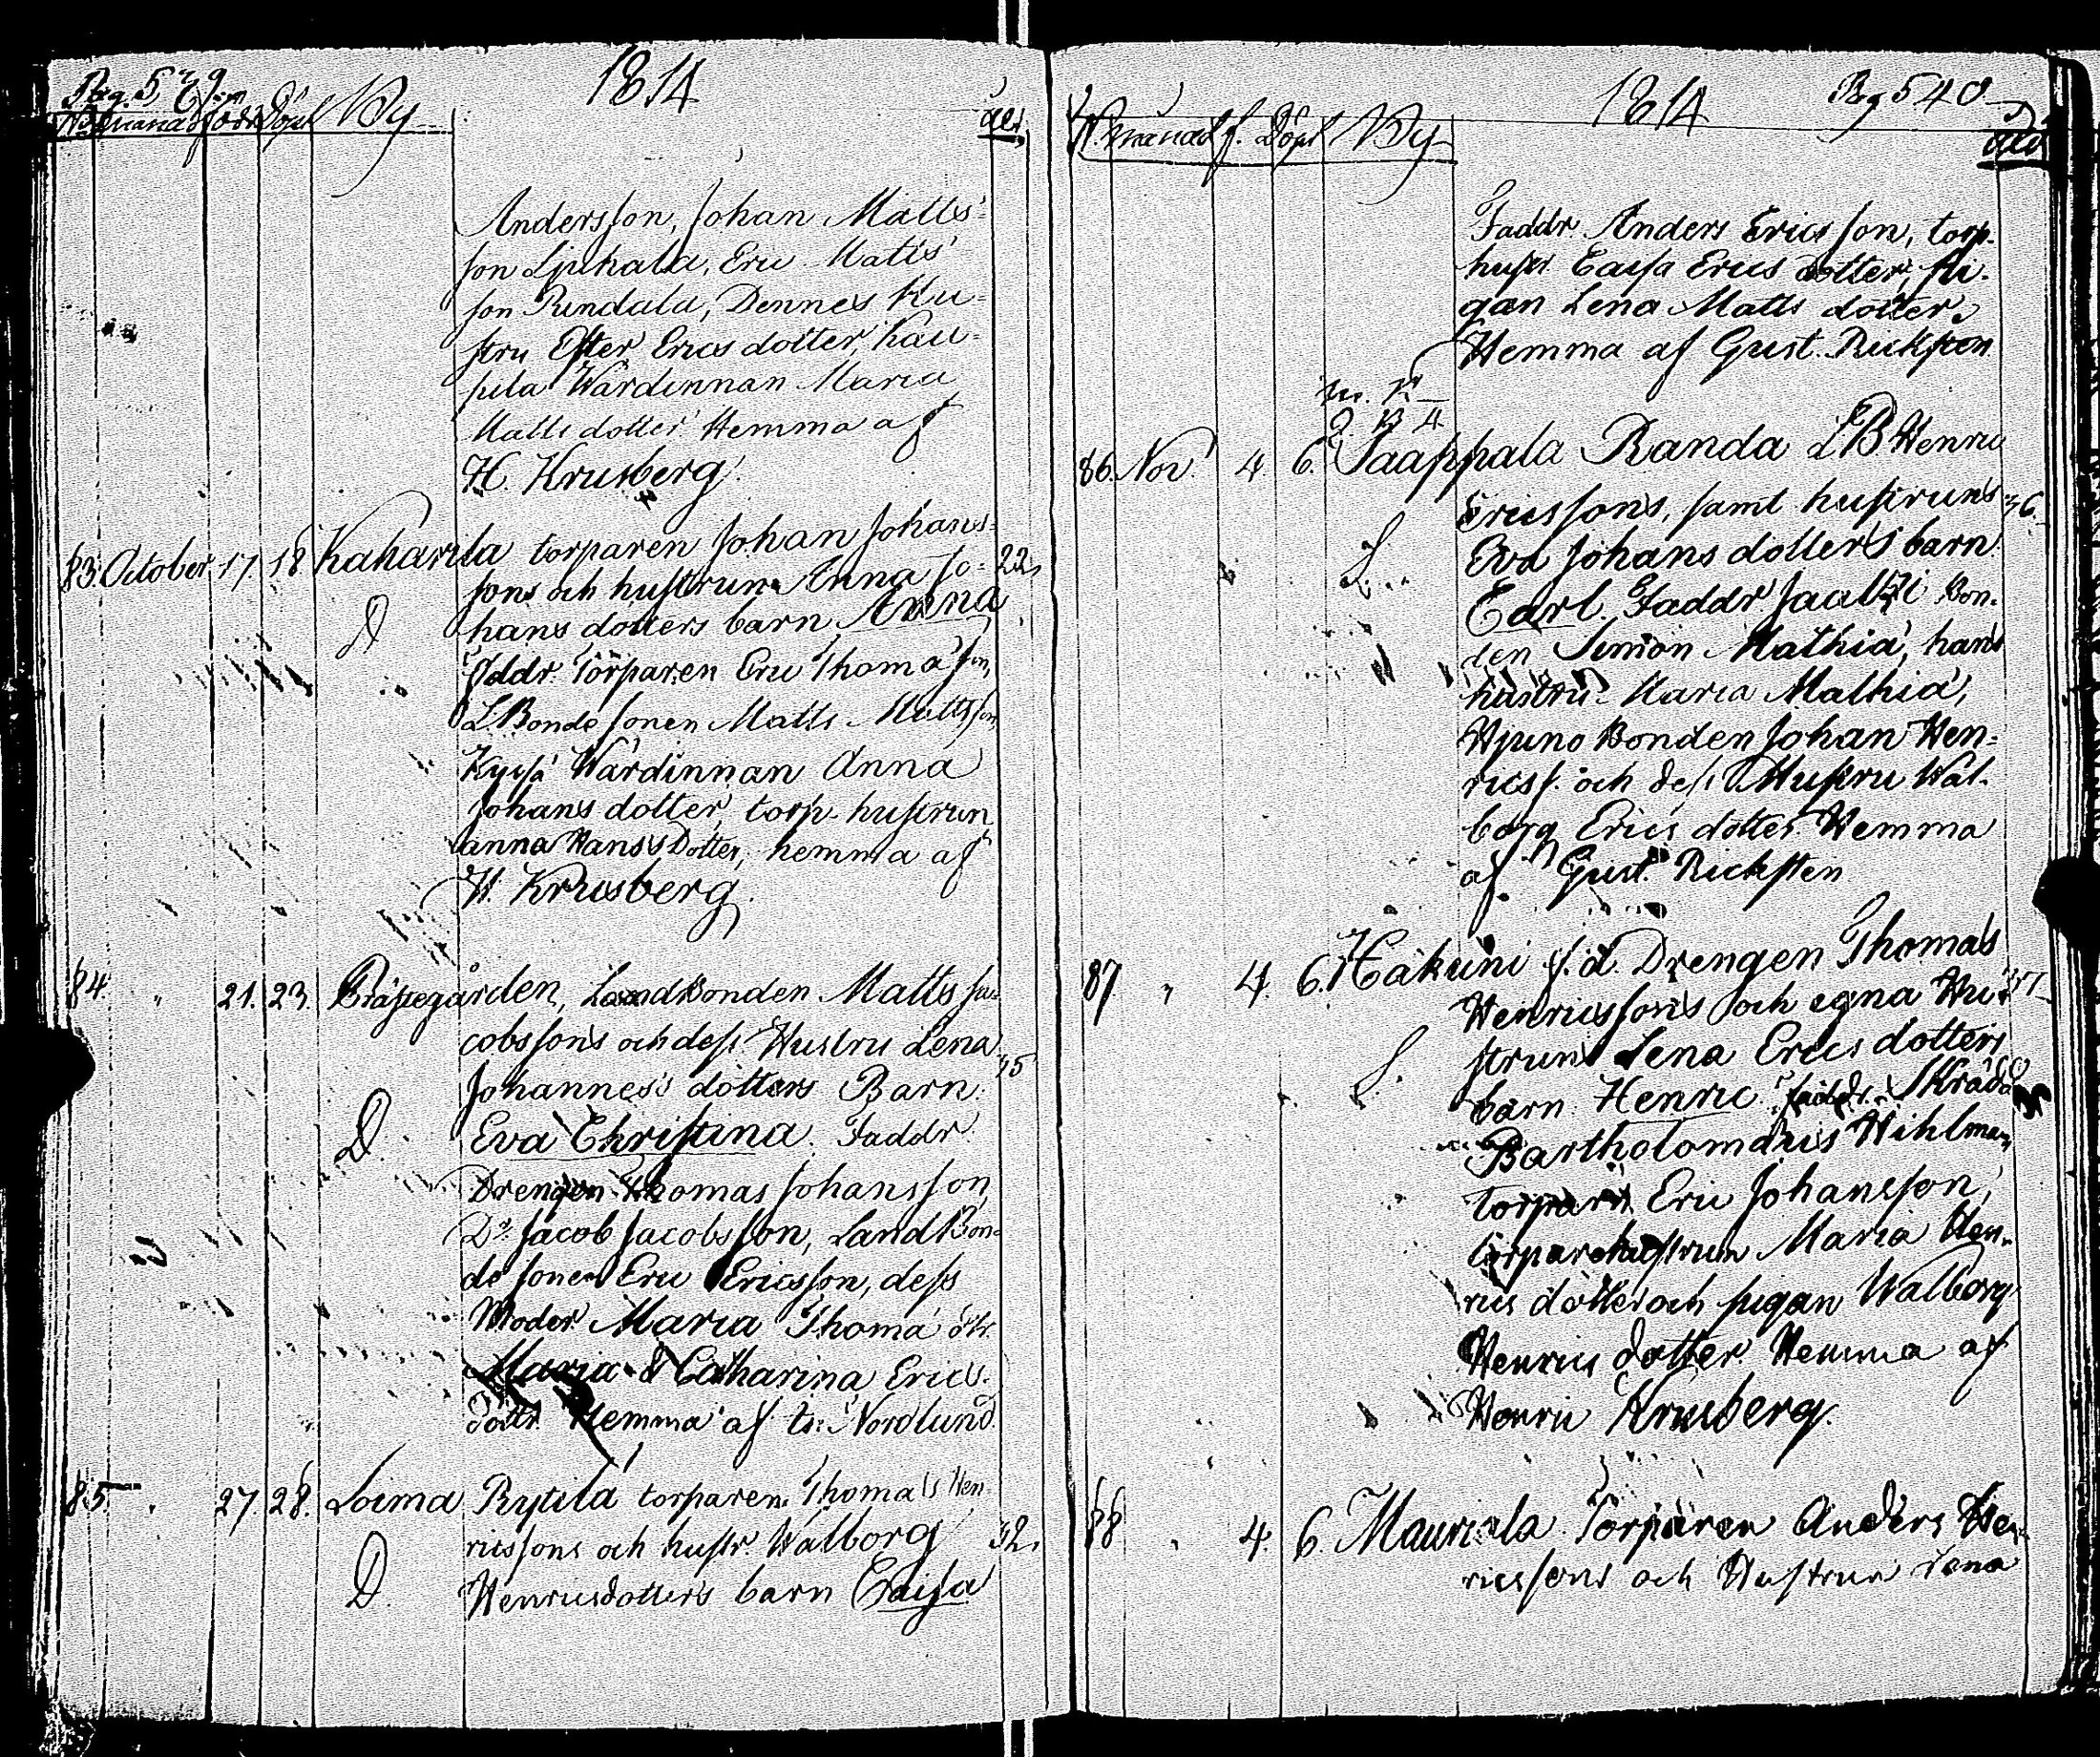 Pag. 539.
1814
N. månad född Döpt By
åld.
Andersson, Johan Matts-
son Sjuhala, Eric Matts
son Rindala, Dennes Hu-
stru Ester Erics dotter, Kau-
pila Wärdinnan Maria
Matts dotter. Hemma af
H. Krusberg.
83. October 17. 18 Kaharila torparen Johan Johans-
sons och hustruns Anna Jo- 22,
hans dotters barn Anna
D
Faddr. Torparen Eric Thomasson,
L. Bonde sonen Matts Mattsson
Kyrsä Wärdinnan Anna
Johans dotter, torp. hustrun
anna Hans Dotter, hemma af
H. Krusberg.
84. " 21. 23. Prästegården, Landbonden Matts Ja-
cobssons och dess Hustru Lena
Johannes's dotters Barn. 35
Eva Christina. Faddr
D.
Drengen Thomas Johansson
Do Jacob Jacobsson, Land Bon-
de sonen Eric Ericsson, dess
Moder Maria Thoma dtr.
Maria & Catharina Erics.
dottr. Hemma af Nordlund.
85. " 27. 28. Loima Rytilä torparen Thomas Hen
ricssons och hustr. Walborg 32,
D. Henricsdotters barn Caisa
1814
Pag 540
N. månad f. Döpt By
åld
Faddr. Anders Ericsson, torp.
hustr Caisa Erics dotter, pi-
gan Lena Matts dotter.
Hemma af Gust. Ricksten
86. Nov. 4. 6. Saappala Randa LB Henric
Ericssons, samt hustruns 36.
Eva Johans dotters barn
Carl. Faddr Jaakki Bon-
den Simon Mathiä, hans
hustru Maria Mathiä,
Hjuno Bonden Johan Hen-
ricss. och dess Hustru Wal-
borg Erics dotter. Hemma
af Gust. Ricksten
87 " 4. 6. Hakuni f. d. Drengen Thomas
Henricssons och egna Hu-
strun Lena Erics dotters
barn Henric. Faddr. Skrädd
Bartholomäus Wihlman,
torparn Eric Johansson,
torparehustrun Maria Hen-
rics dotter och pigan Walborg
Henrics dotter. Hemma af
Henric Krusberg.
88 " 4. 6. Mauriala Torparen Anders Hen
ricssons och Hustrun Lena